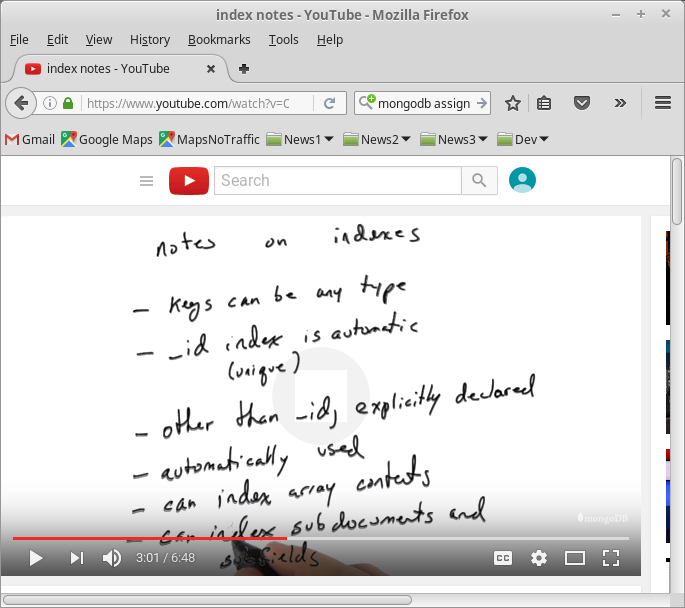 index notes - YouTube - Mozilla Firefox
File Edit View History Bookmarks Tools Help
index notes - YouTube
https://www.youtube.com/watch?v=C
mongodb assign
Gmail Google Maps MapsNoTraffic News1 News2 News3 Dev
Search
notes on indexes
- keys can be any type
- _id index is automatic
(unique)
- other than _id, explicitly declared
- automatically used
- can index array contents
- can index subdocuments and
subfields
mongoDB
3:01 / 6:48
CC